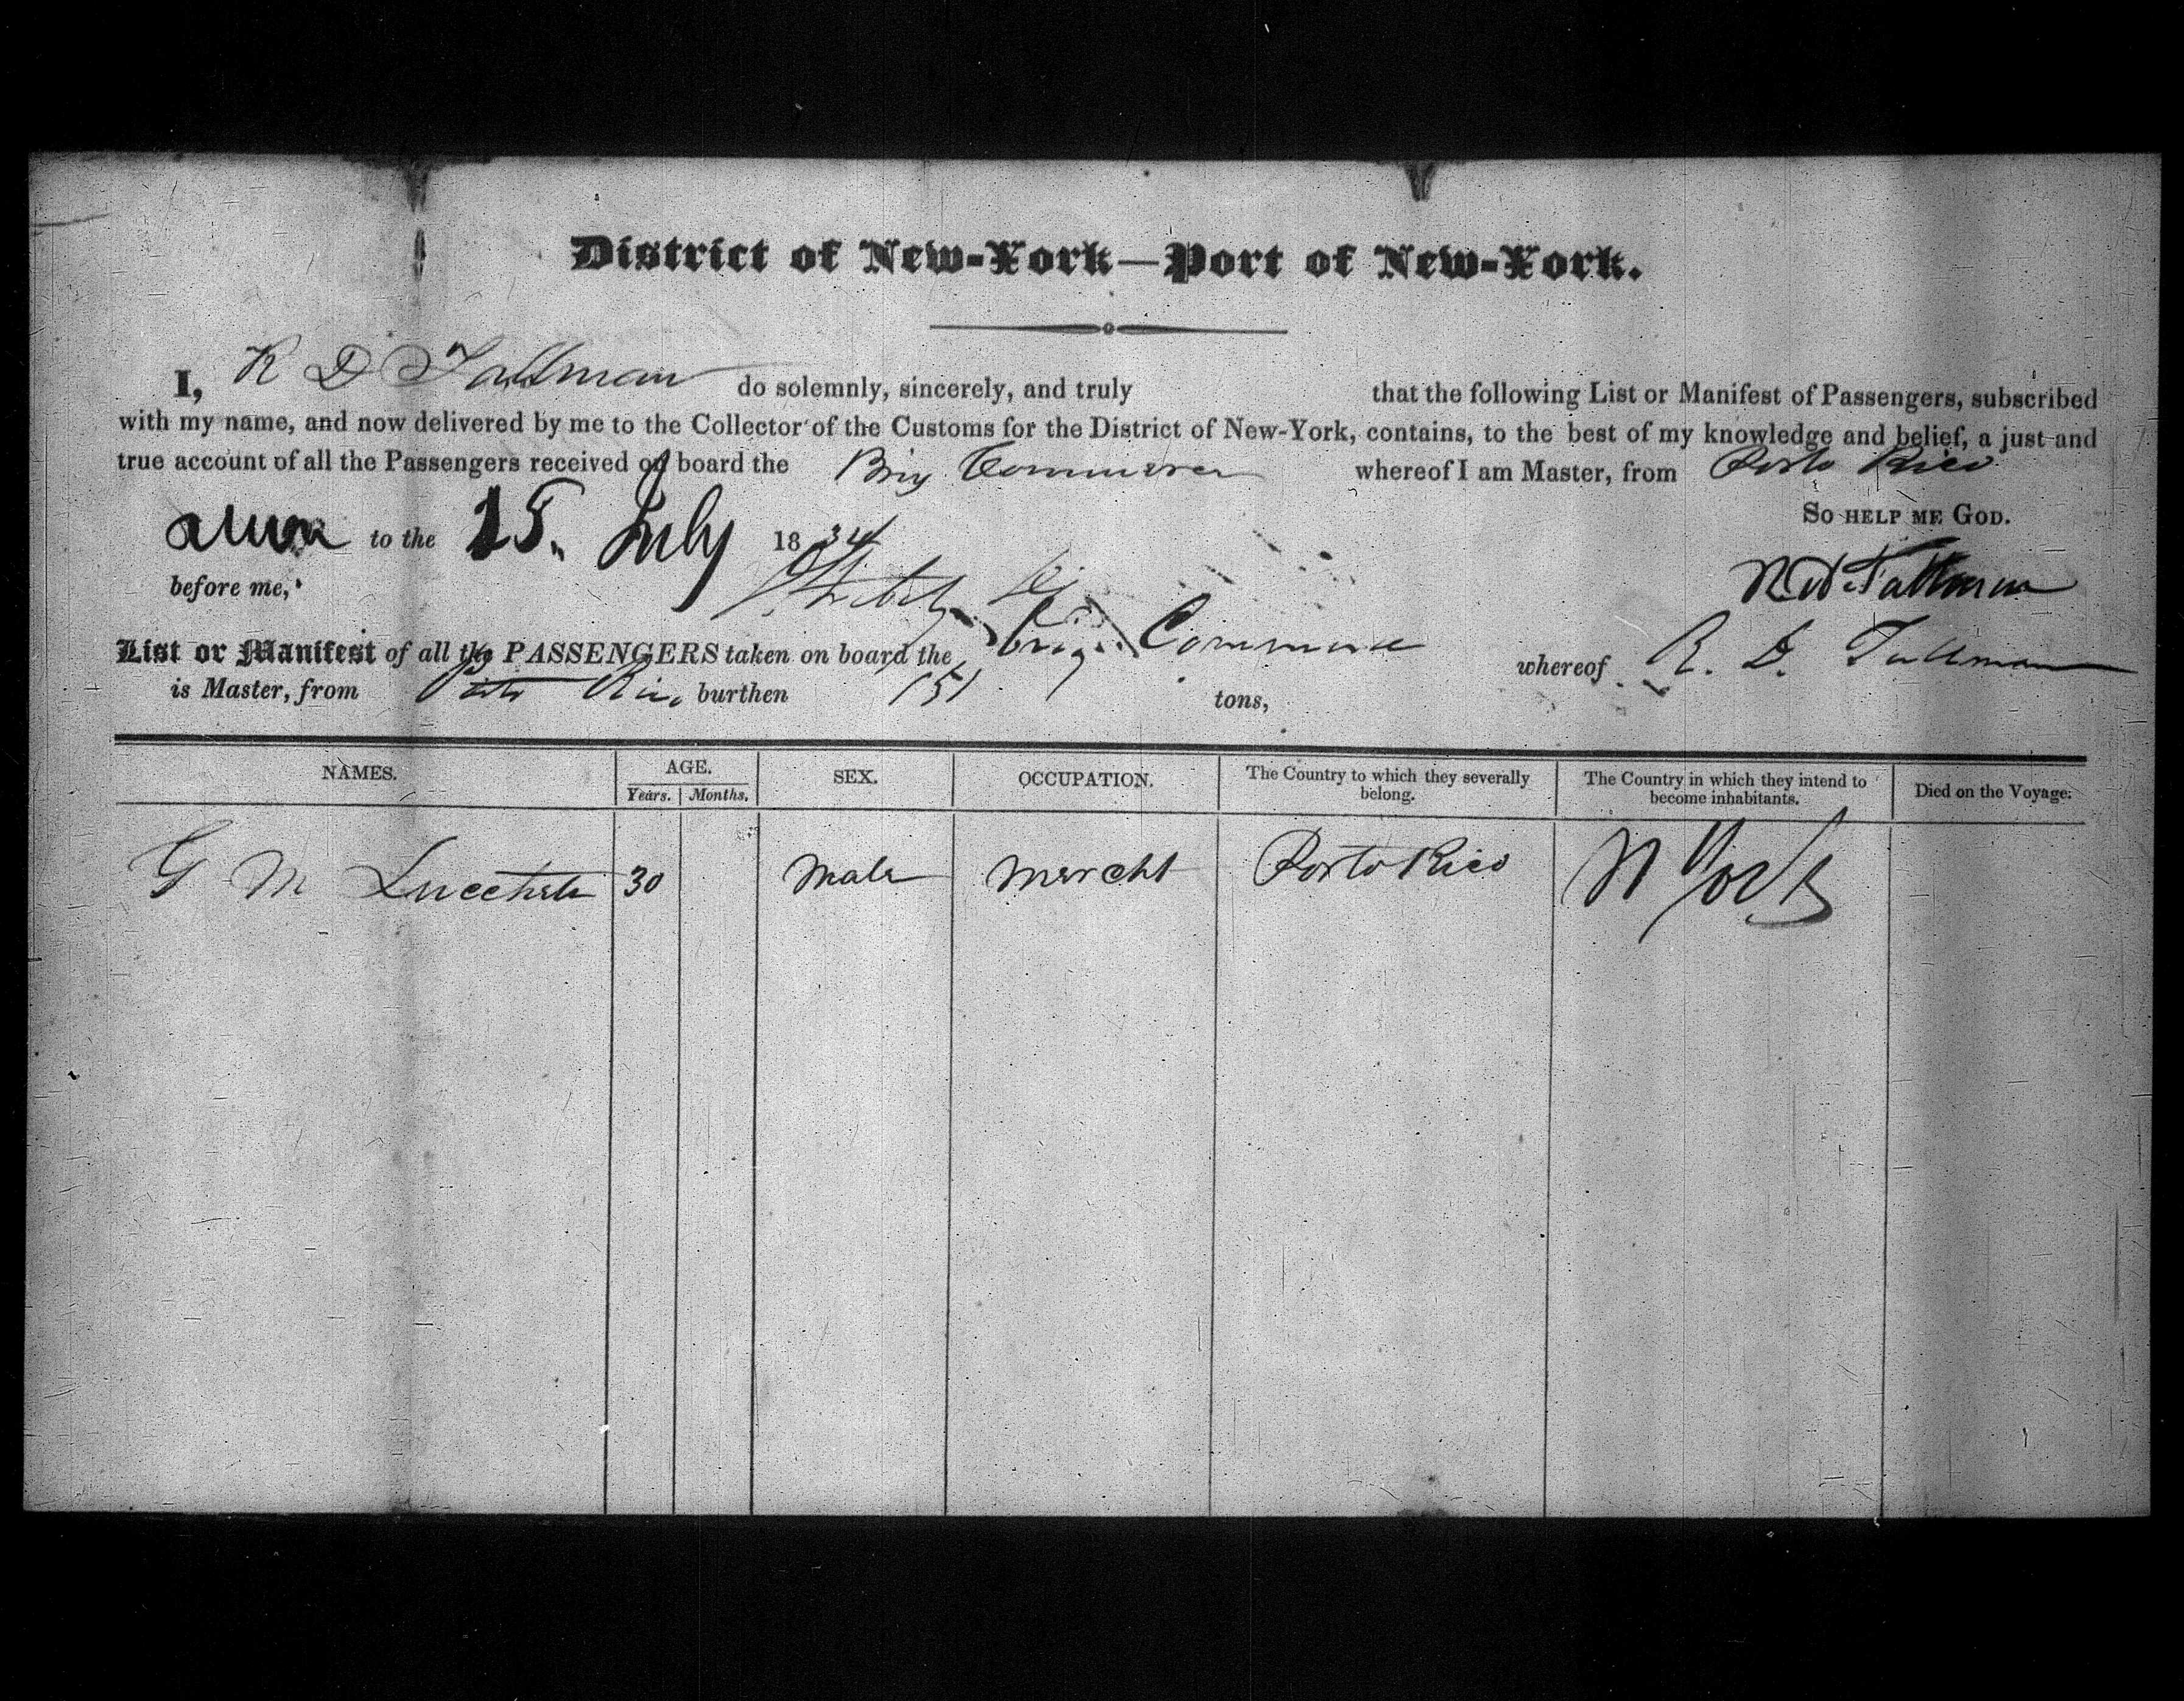 District of New-York—Port of New-York.
I, R D Tallman do solemnly, sincerely, and truly that the following List or Manifest of Passengers, subscribed
with my name, and now delivered by me to the Collector of the Customs for the District of New-York, contains, to the best of my knowledge and belief, a just and
true account of all the Passengers received on board the Brig Commerce whereof I am Master, from Porto Rico
So help me God.
to the 15. July 1834
R D Tallman
before me,
List or Manifest of all the PASSENGERS taken on board the brig Commerce whereof R. D. Tallman
is Master, from Porto Rico burthen 151 tons,
NAMES. AGE. SEX. OCCUPATION. The Country to which they severally belong. The Country in which they intend to become inhabitants. Died on the Voyage.
Years. Months.
G M 30 Male Mercht Porto Rico N York